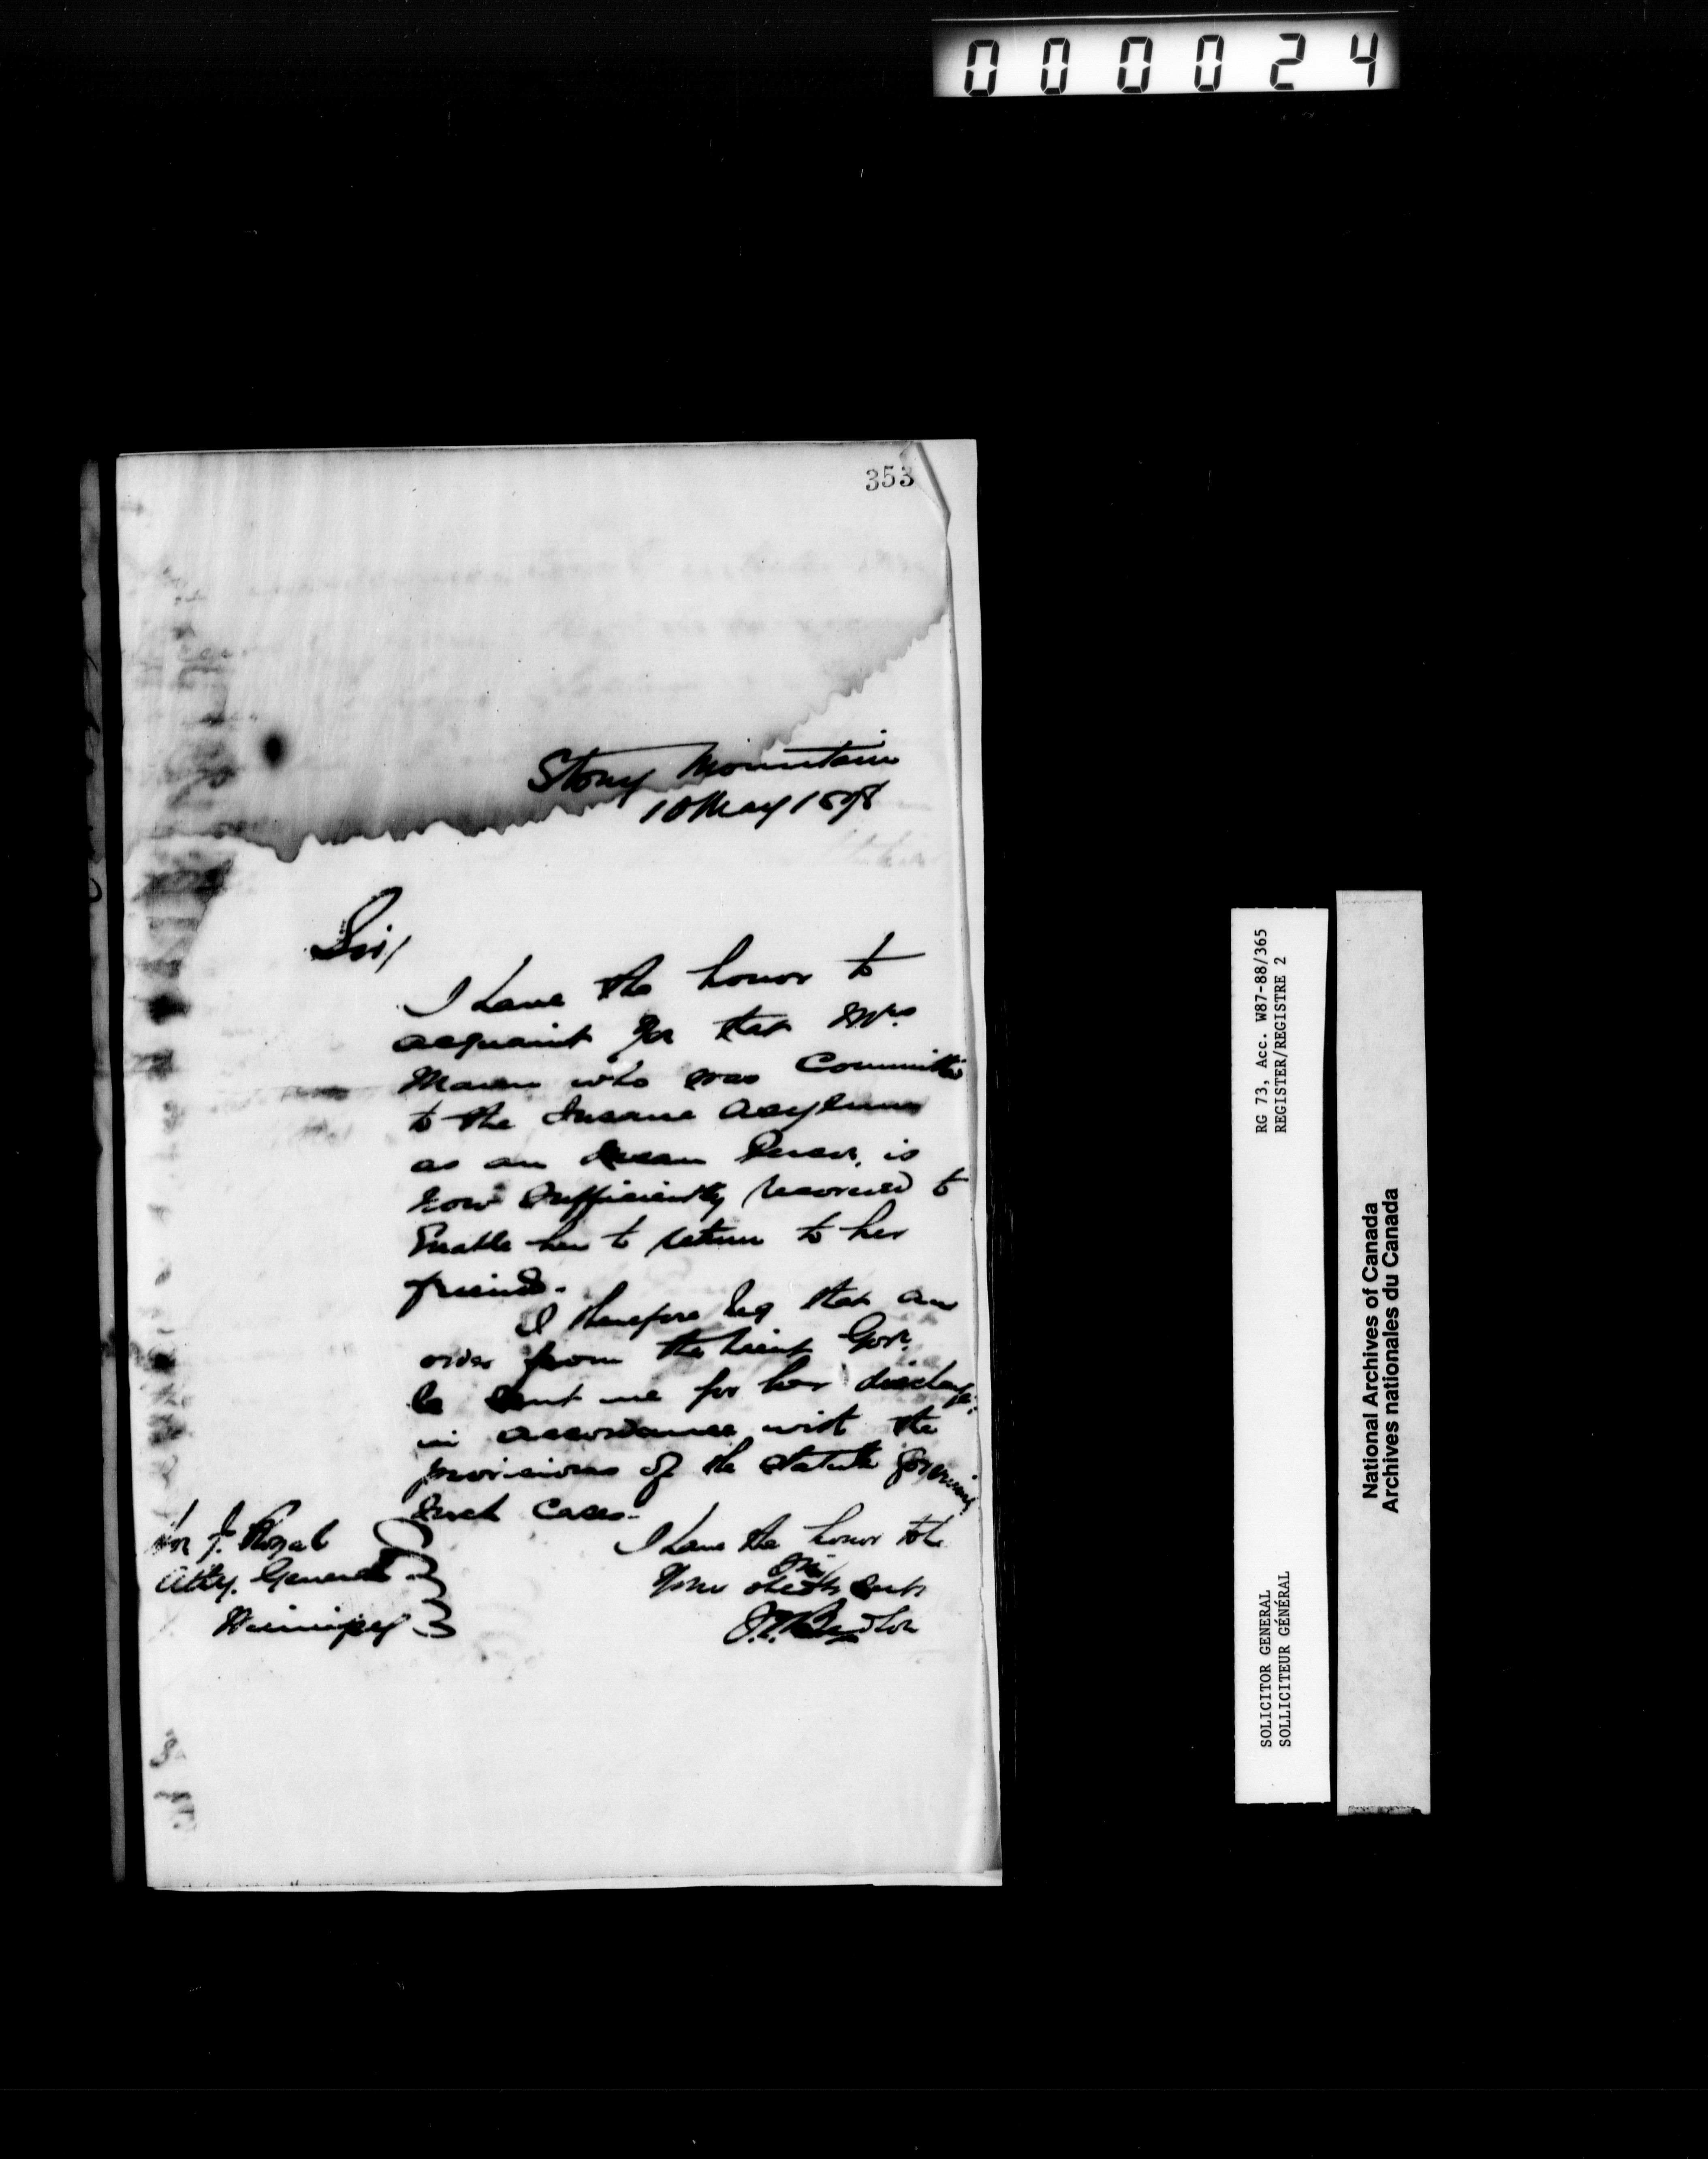 000024
353
Stony Mountain
10 May 1878
Sir,
I have the honor to
acquaint you that Mrs
who was committed
to the Insane Asylum
as an Insane Person, is
now sufficiently recovered to
Enable her to return to her
friends.
I therefore beg that an
order from the Lieut Govr.
be sent me for her discharge
in accordance with the
provisions of the statute governing
such cases.
I have the honor to be
Sir
Your obedt Servt
Hon J. Royal
Atty. General
Winnipeg
RG 73, Acc. W87-88/365
REGISTER/REGISTRE 2
SOLICITOR GENERAL
SOLLICITEUR GÉNÉRAL
National Archives of Canada
Archives nationales du Canada